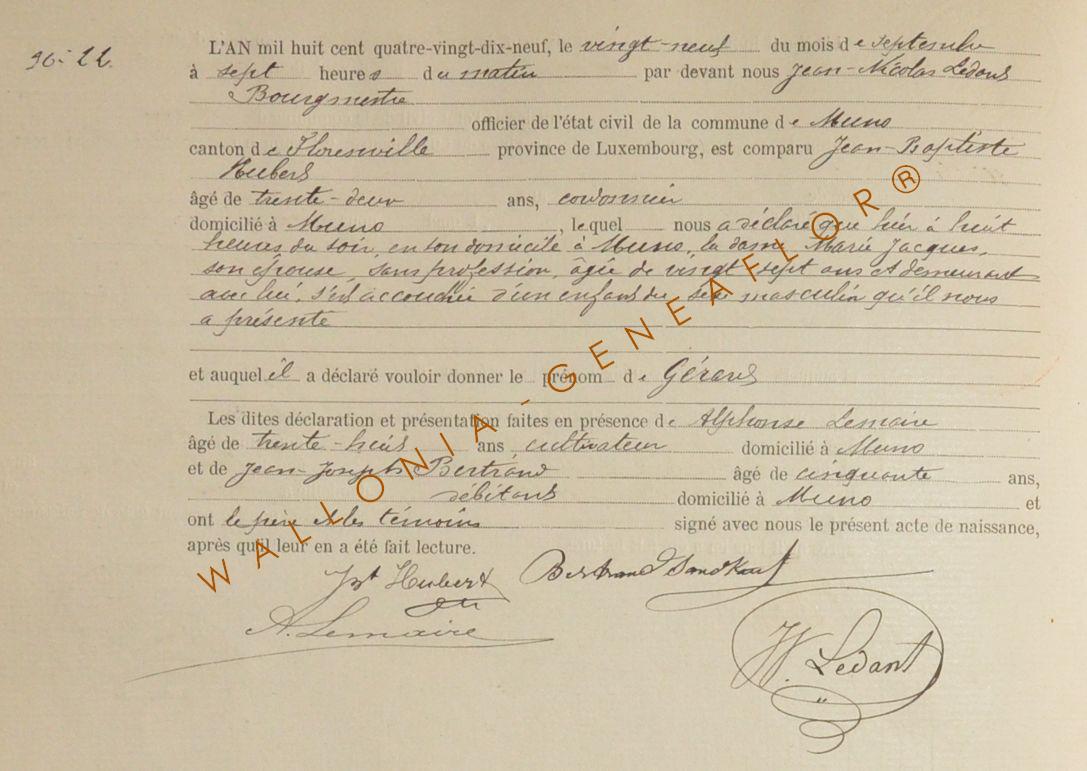 96-22.
L'AN mil huit cent quatre-vingt-dix-neuf, le vingt-neuf du mois de septembre
à sept heures du matin par devant nous Jean-Nicolas Ledant
Bourgmestre
officier de l'état civil de la commune de Muno
canton de Florenville province de Luxembourg, est comparu Jean-Baptiste
Hubert
âgé de trente-deux ans, cordonnier
domicilié à Muno, lequel nous a déclaré que hier à huit
heures du soir, en son domicile à Muno, la dame Marie Jacques,
son épouse, sans profession, âgée de vingt sept ans et demeurant
avec lui, s'est accouchée d'un enfant du sexe masculin qu'il nous
a présenté
et auquel il a déclaré vouloir donner le prénom de Gérard
Les dites déclaration et présentation faites en présence de Alphonse Lemaire
âgé de trente-huit ans, cultivateur domicilié à Muno
et de Jean-Joseph Bertrand âgé de cinquante ans,
débitant domicilié à Muno et
ont le père et les témoins signé avec nous le présent acte de naissance,
après qu'il leur en a été fait lecture.
Jbt Hubert Bertrand
A. Lemaire
N. Ledant
WALLONIA-GENEAFLOR®